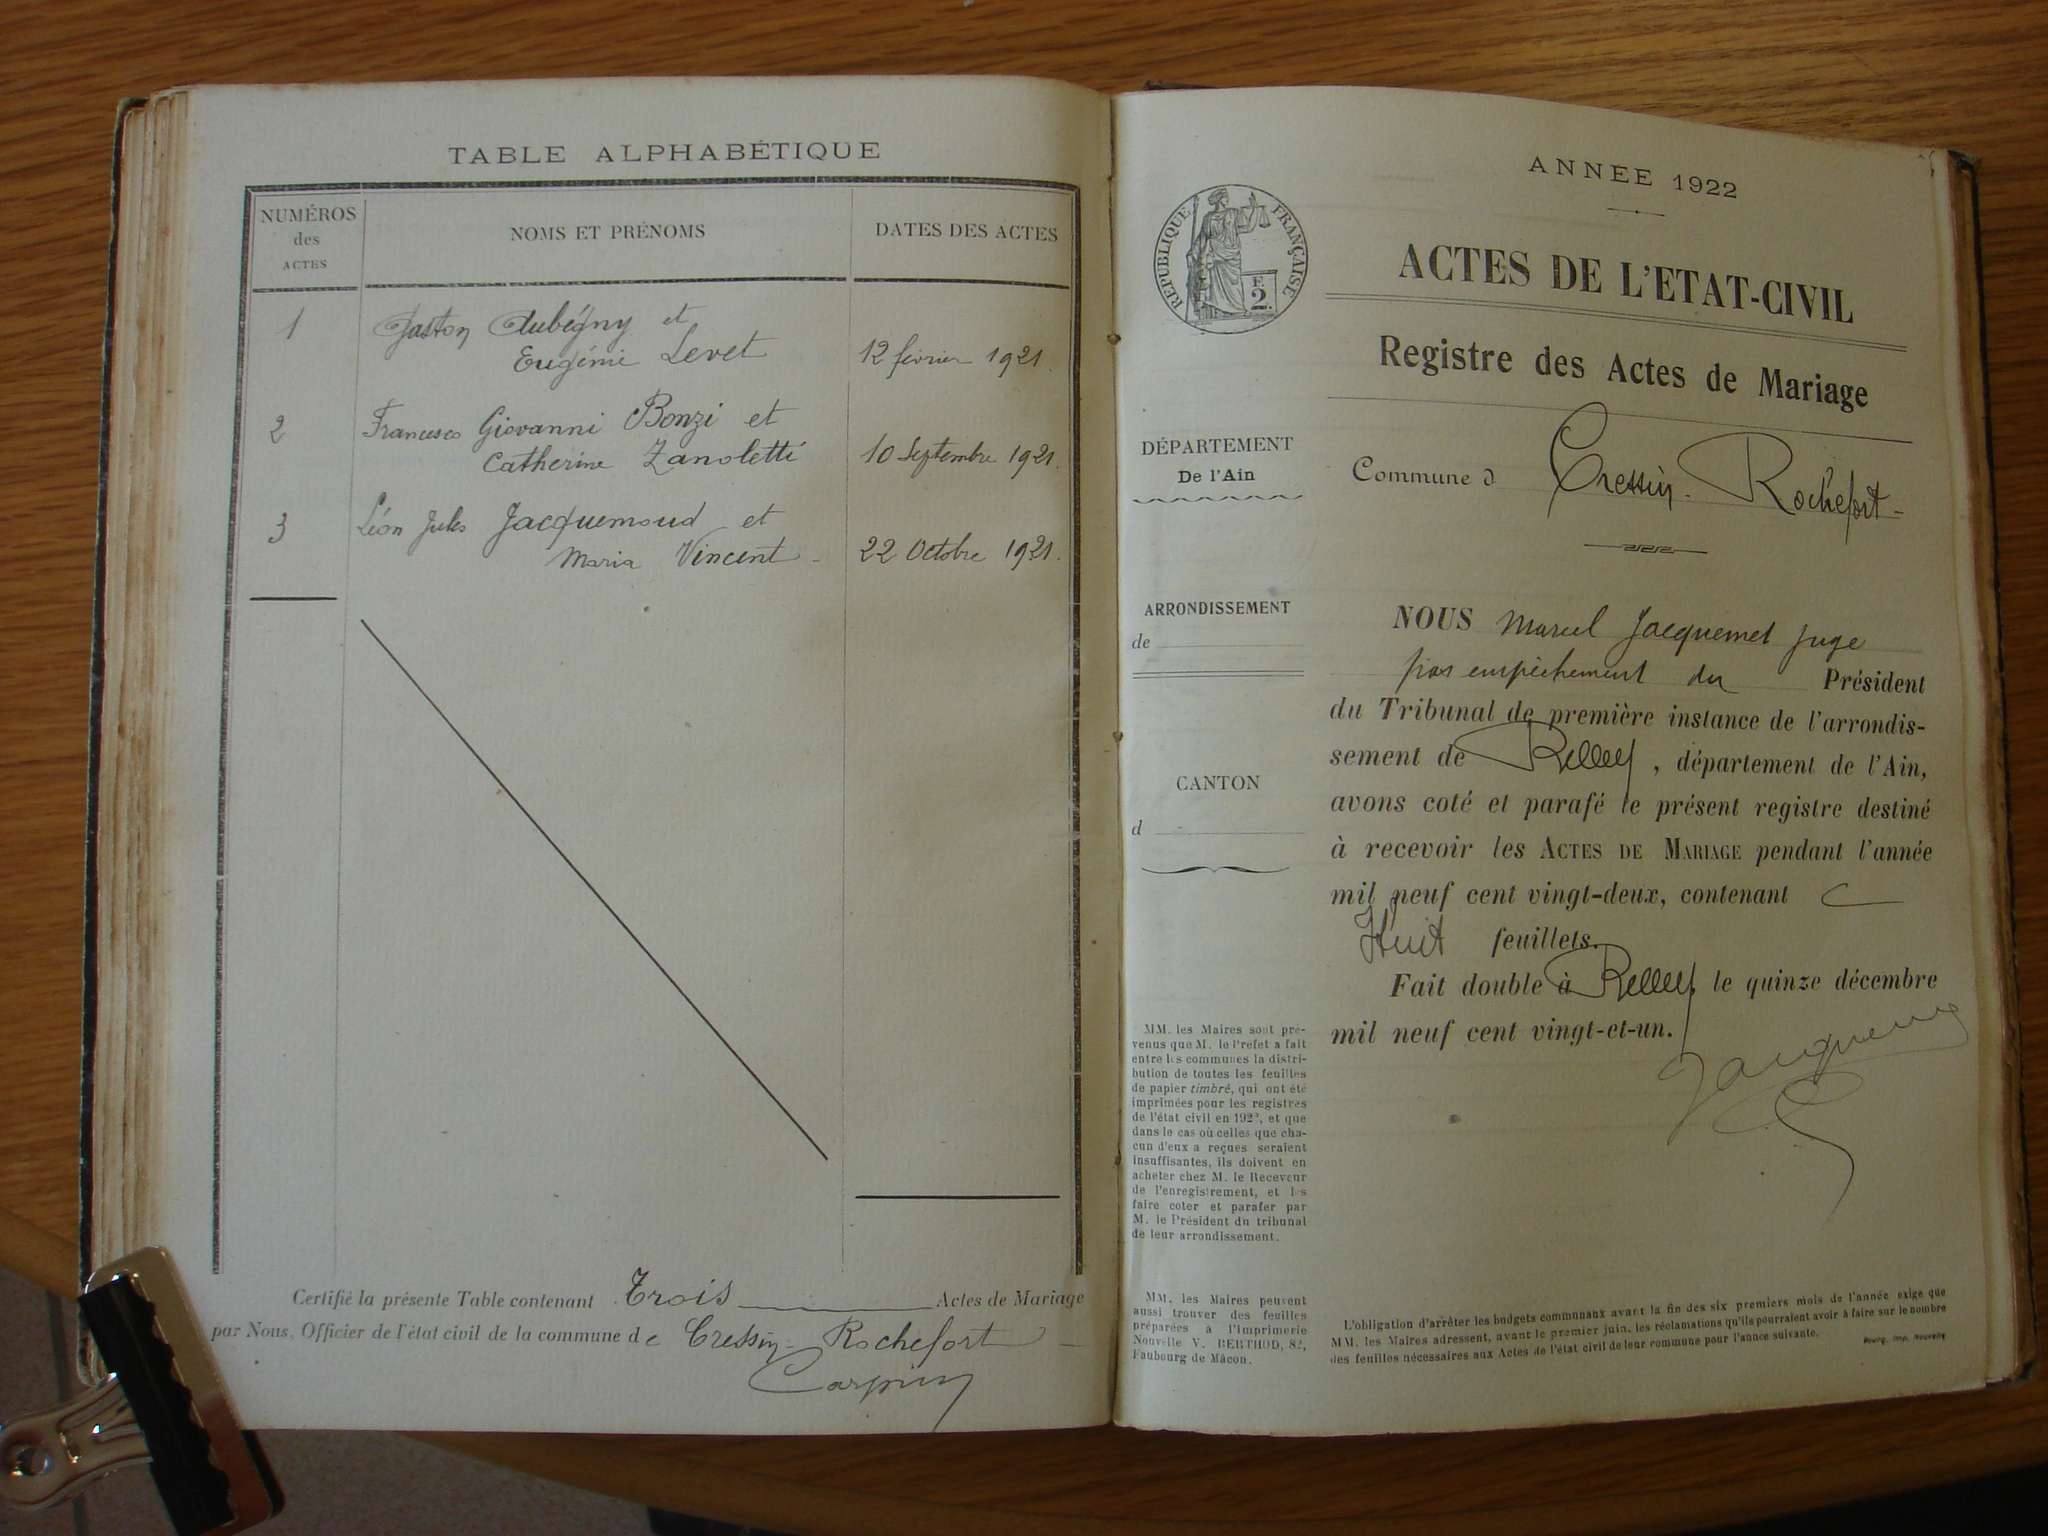 TABLE ALPHABÉTIQUE
NUMÉROS
des
ACTES
NOMS ET PRÉNOMS
DATES DES ACTES
1 Gaston Aubégny et
Eugénie Levet 12 février 1921.
2 Francesco Giovanni Bonzi et
Catherine Zanoletti 10 Septembre 1921.
3 Léon Jules Jacquemoud et
Maria Vincent 22 Octobre 1921.
Certifié la présente Table contenant Trois Actes de Mariage
par Nous, Officier de l'état civil de la commune de Cressin-Rochefort
Carpin
ANNEE 1922
RÉPUBLIQUE FRANÇAISE
E
2.
ACTES DE L'ETAT-CIVIL
Registre des Actes de Mariage
DÉPARTEMENT
De l'Ain
Commune d Cressin-Rochefort
ARRONDISSEMENT
de
CANTON
d
NOUS Marcel Jacquemet juge
par empêchement du Président
du Tribunal de première instance de l'arrondis-
sement de Belley, département de l'Ain,
avons coté et parafé le présent registre destiné
à recevoir les ACTES DE MARIAGE pendant l'année
mil neuf cent vingt-deux, contenant
Huit feuillets.
Fait double à Belley, le quinze décembre
mil neuf cent vingt-et-un.
MM. les Maires sont pré-
venus que M. le Préfet a fait
entre les communes la distri-
bution de toutes les feuilles
de papier timbré, qui ont été
imprimées pour les registres
de l'état civil en 1922, et que
dans le cas où celles que cha-
cun d'eux a reçues seraient
insuffisantes, ils doivent en
acheter chez M. le Receveur
de l'enregistrement, et les
faire coter et parafer par
M. le Président du tribunal
de leur arrondissement.
MM. les Maires peuvent
aussi trouver des feuilles
préparées à l'Imprimerie
Nouvelle V. BERTHOD, 82,
Faubourg de Mâcon.
L'obligation d'arrêter les budgets communaux avant la fin des six premiers mois de l'année exige que
MM. les Maires adressent, avant le premier juin, les réclamations qu'ils pourraient avoir à faire sur le nombre
des feuilles nécessaires aux Actes de l'état civil de leur commune pour l'année suivante. Bourg, Imp. Nouvelle